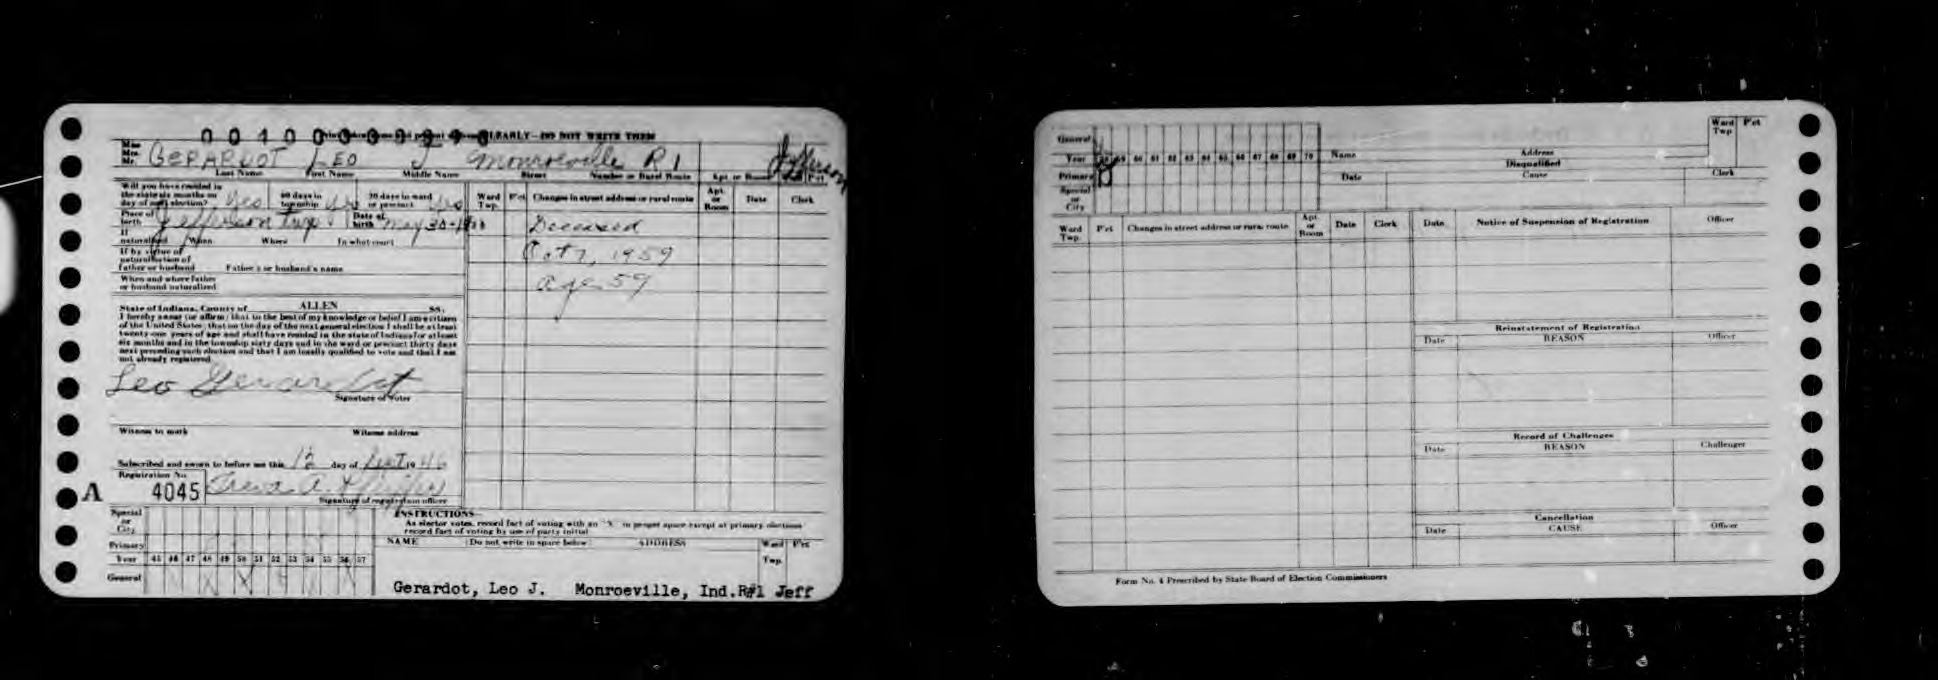 CLEARLY—DO NOT WRITE THEM
Miss
Mrs.
Mr. GERARDOT LEO J Monroeville R 1 Jefferson
Last Name First Name Middle Name Street Number or Rural Route Apt or Room P'ct
Will you have resided in
the state six months on
day of next election? Yes 60 days in
township Yes 30 days in ward
or precinct Yes
Ward
Twp. P'ct Changes in street address or rural route Apt.
or
Room Date Clerk
Place of
birth Jefferson Twp. Date of
birth May 30-19
Deceased
If
naturalized When Where In what court
Oct 7, 1959
If by virtue of
naturalization of
father or husband Father's or husband's name
age 59
When and where father
or husband naturalized
State of Indiana, County of ALLEN SS:
I hereby swear (or affirm) that to the best of my knowledge or belief I am a citizen
of the United States; that on the day of the next general election I shall be at least
twenty-one years of age and shall have resided in the state of Indiana for at least
six months and in the township sixty days and in the ward or precinct thirty days
next preceding such election and that I am legally qualified to vote and that I am
not already registered.
Leo Gerardot
Signature of Voter
Witness to mark Witness address
Subscribed and sworn to before me this 12 day of Sept 19 46
Registration No.
A 4045
Signature of registration officer
Special
or
City
Primary
Year 45 46 47 48 49 50 51 52 53 54 55 56 57
General
INSTRUCTIONS—
As elector votes, record fact of voting with an "X" in proper space except at primary elections
record fact of voting by use of party initial
NAME (Do not write in space below) ADDRESS Ward
Twp. P'ct.
Gerardot, Leo J. Monroeville, Ind.R#1 Jeff
General
Year 58 59 60 61 62 63 64 65 66 67 68 69 70
Primary
Special
or
City
Name Address
Ward
Twp P'ct.
Disqualified
Date Cause Clerk
Ward
Twp. P'ct Changes in street address or rural route Apt.
or
Room Date Clerk
Date Notice of Suspension of Registration Officer
Reinstatement of Registration
Date REASON Officer
Record of Challenges
Date REASON Challenger
Cancellation
Date CAUSE Officer
Form No. 4 Prescribed by State Board of Election Commissioners